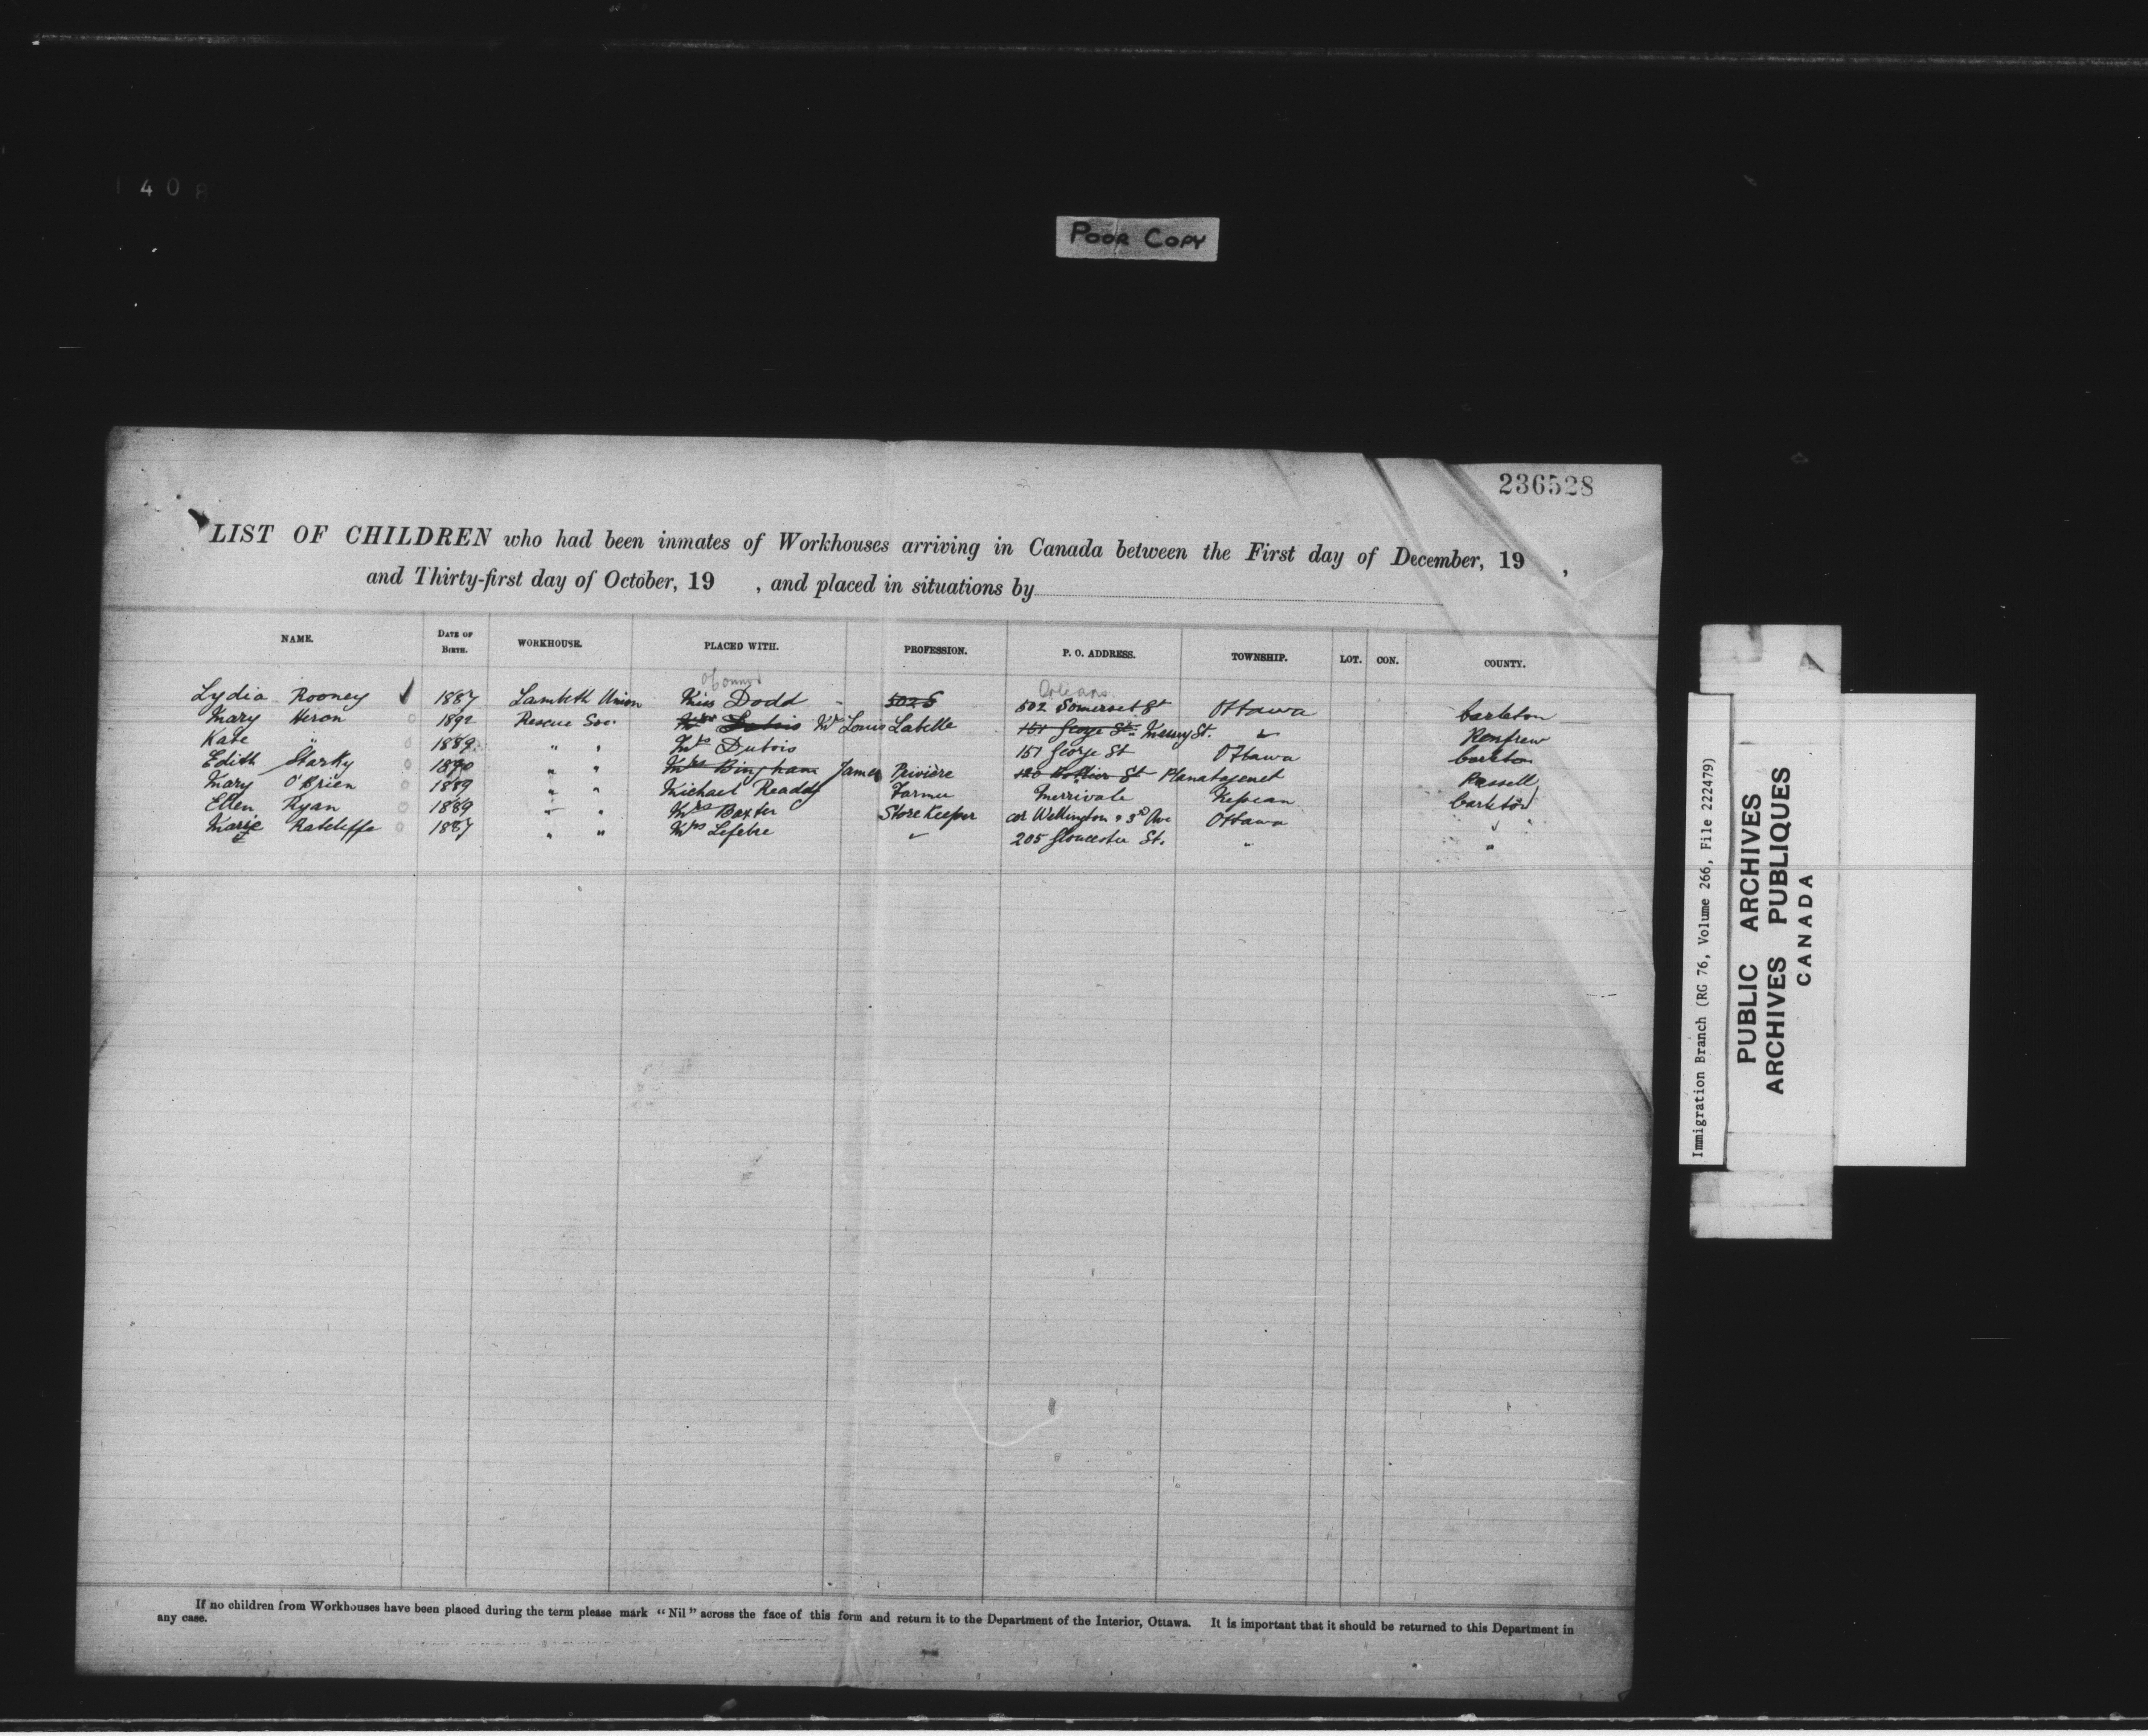 1408
POOR COPY
236528
LIST OF CHILDREN who had been inmates of Workhouses arriving in Canada between the First day of December, 19 ,
and Thirty-first day of October, 19 , and placed in situations by
NAME. DATE OF BIRTH. WORKHOUSE. PLACED WITH. PROFESSION. P. O. ADDRESS. TOWNSHIP. LOT. CON. COUNTY.
O'Connor Orleans
Lydia Rooney ✓ 1887 Lambeth Union Miss Dodd " 502 S 502 Somerset St Ottawa Carleton
Mary Heron 1892 Rescue Soc. Mrs Dubois Mr Louis Labelle 151 George St. Murray St. " Renfrew
Kate " 1889 " " Mrs Dubois 151 George St Ottawa Carleton
Edith Starky 1890 " " Mrs Bingham James Rivière St Plantagenet Russell
Mary O'Brien 1889 " " Michael Readdy Farmer Merrivale Nepean Carleton
Ellen Ryan 1889 " " Mrs Baxter Store Keeper cor Wellington & 3rd Ave Ottawa "
Marie Ratcliffe 1887 " " Mrs Lefebre " 205 Gloucester St. " "
If no children from Workhouses have been placed during the term please mark "Nil" across the face of this form and return it to the Department of the Interior, Ottawa. It is important that it should be returned to this Department in
any case.
Immigration Branch (RG 76, Volume 266, File 222479)
PUBLIC ARCHIVES
ARCHIVES PUBLIQUES
CANADA